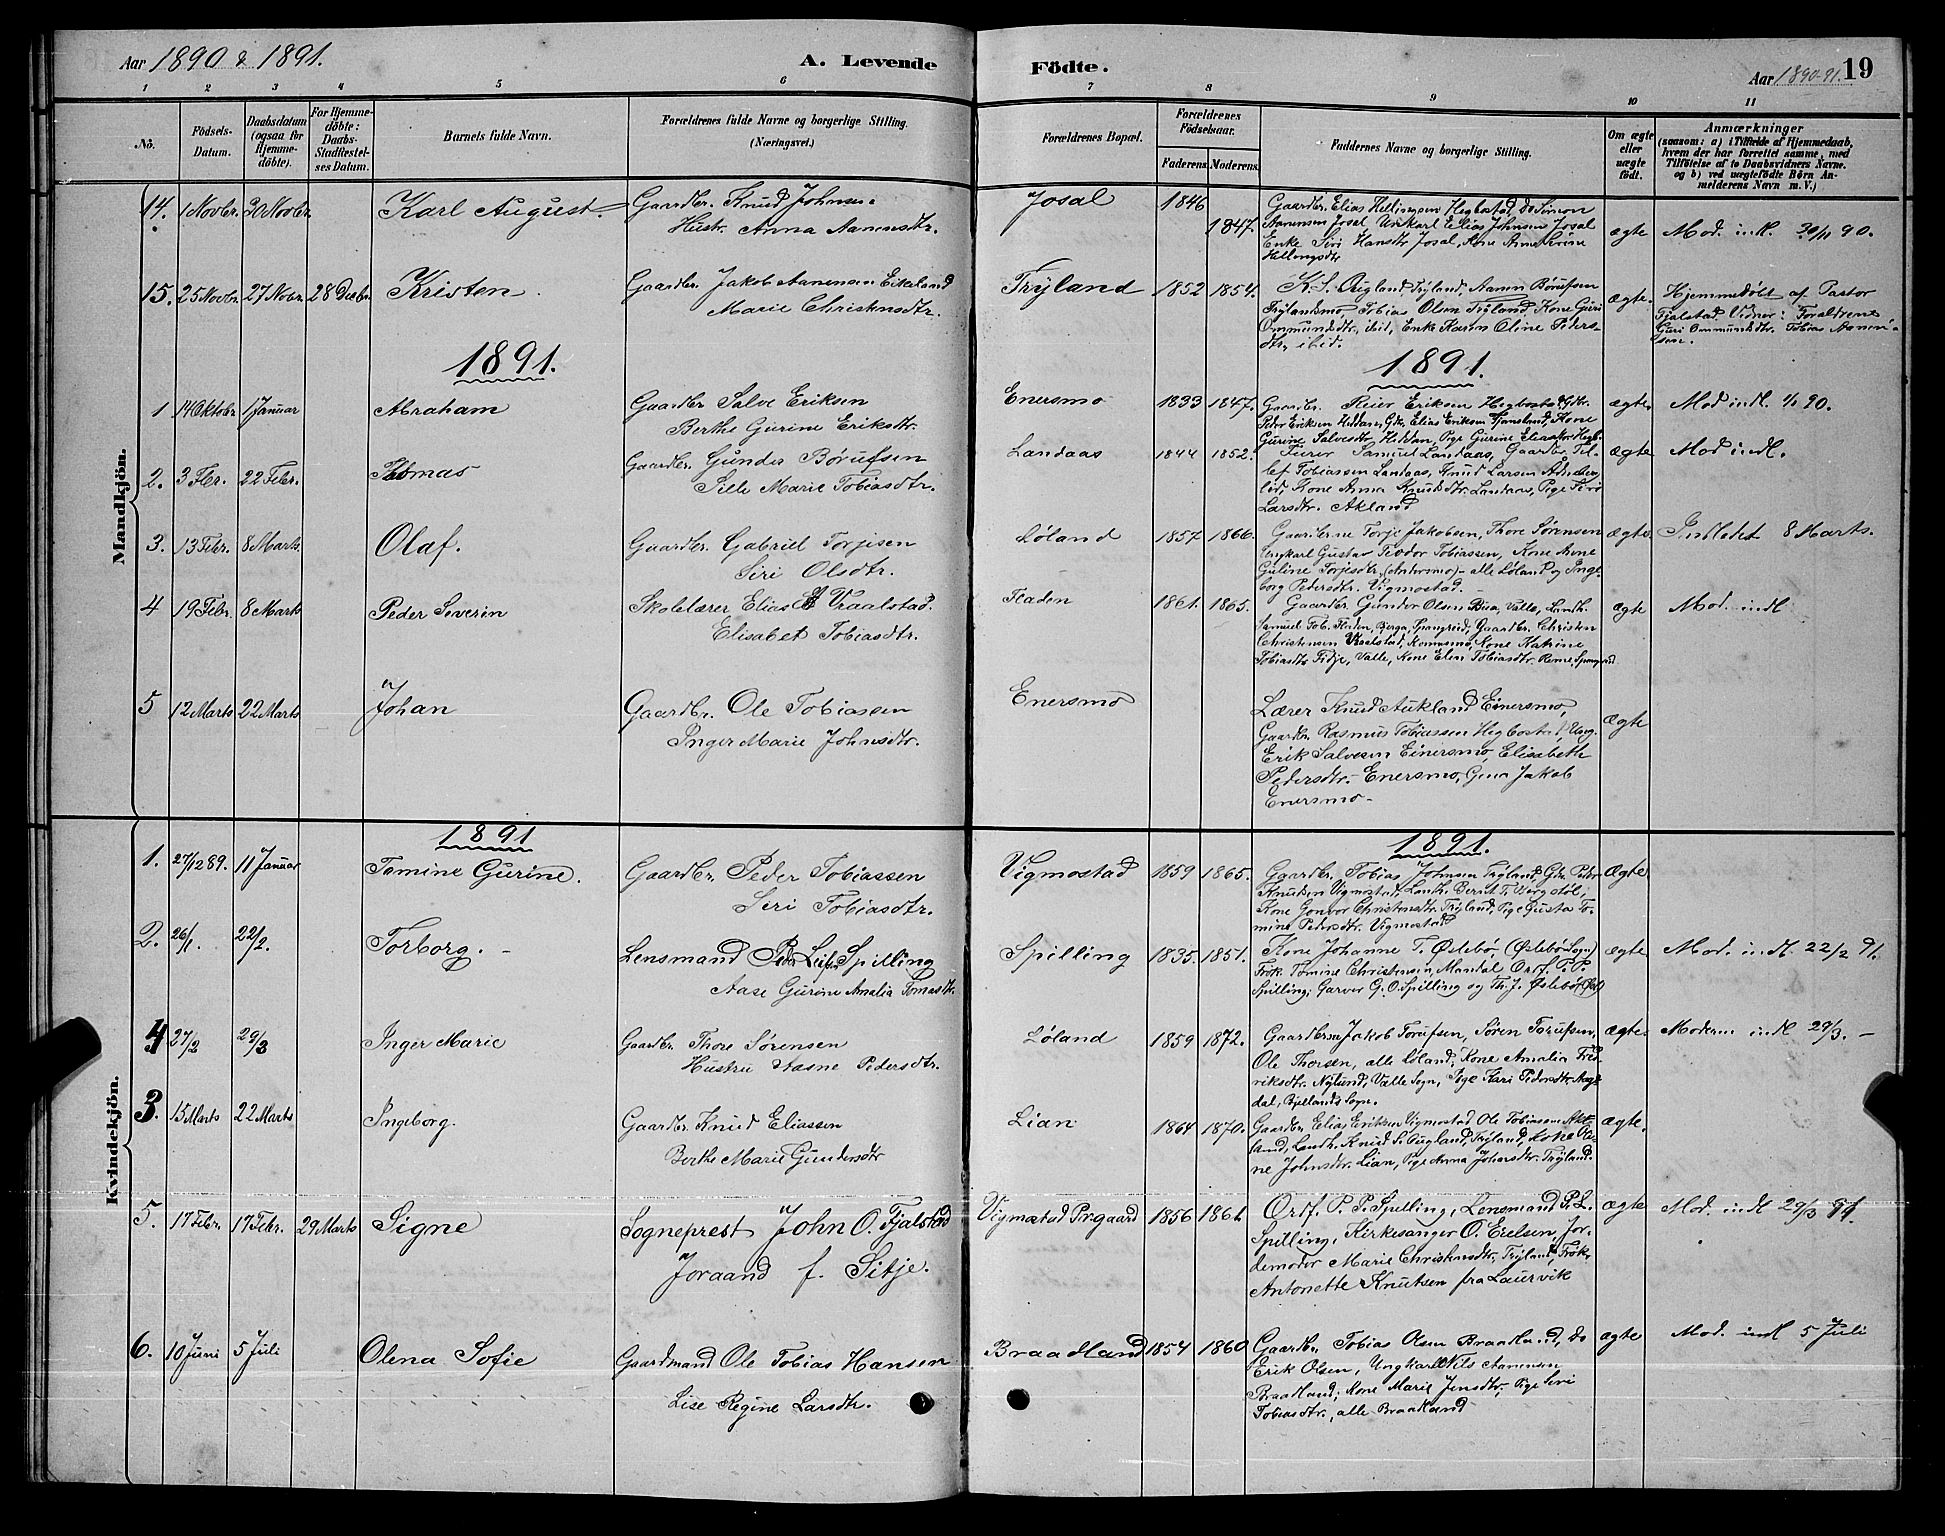 Aar 1890 & 1891.
A. Levende
Födte.
Aar 1890-91.
19
1 2 3 4 5 6 7 8 9 10 11
No.
Födsels-
Datum.
Daabsdatum
(ogsaa for
Hjemme-
döbte).
For Hjemme-
döbte:
Daabs-
Stadfæstel-
ses Datum.
Barnets fulde Navn.
Forældrenes fulde Navne og borgerlige Stilling.
(Næringsvei.)
Forældrenes Bopæl.
Forældrenes
Födselsaar.
Faderens. Moderens.
Faddernes Navne og borgerlige Stilling.
Om ægte
eller
uægte
födt.
Anmærkninger
(saasom: a) i Tilfælde af Hjemmedaab,
hvem der har forrettet samme, med
Tilföielse af to Daabsvidners Navne.
og b) ved uægtefödte Börn An-
melderens Navn m. V.)
Mandkjön.
14. 1 Novbr. 30 Novbr. Karl August Gaardbr. Knud Johnsen
Hustr. Anna Aanensdtr.
Josal 1846 1847.
Gaardbr. Elias Hillingsen Hegbostad, do Simon
Aanensen Josal, Unkarl Elias Johnsen Josal
Enke Siri Hansdtr Josal, Kone Anne Serine
Hillingsdtr
ægte Mod. indl. 30/11 90.
15. 25 Novbr. 27 Novbr. 28 Decbr. Kristen Gaardbr. Jakob Aanensen Eikeland
Marie Christensdtr.
Tryland 1852 1854.
K. S. Augland, Tryland, Aanen Börufsen
Trylandsmo Tobias Olsen Tryland, Kone Guri
Ommundsdtr, ibid, Enke Karen Oline Peders-
dtr, ibid.
ægte. Hjemmedøbt af Pastor
Fjalstad. Vidner: Forældrene
Guri Ommundsdtr. Tobias Aanen-
sen.
1891.
1891.
1 14 Oktober 1 Januar Abraham Gaardbr Salve Eriksen
Berthe Gurine Eriksdtr.
Enersmo 1833 1847.
Gaardbr. Reier Eriksen Hegbostad, Gdbr.
Peder Eriksen Heddan, Gbr. Elias Eriksen Fjansland, Kone
Gurine Salvesdtr, Heddan, Pige Gurine Eliasdtr Hegb.
ægte. Mod indl. 1/1 90.
2. 3 Fbr. 22 Febr. Tomas Gaardbr. Gunder Børufsen
Sille Marie Tobiasdtr.
Landaas 1844 1852.
Samuel Landaas, Gaardbr Tel-
lef Tobiassen Landaas, Knud Larsen
Kone Anna Knudsdtr. Landaas, Pige Siri
Larsdtr. Akland
ægte Mod indl.
3. 13 Febr. 8 Marts. Olaf. Gaardbr. Gabriel Torjisen
Siri Olsdtr.
Løland 1857 1866.
Gaardbr.ne Torje Jakobsen, Thore Sørensen
Ungkarl Gustav Teodor Tobiassen, Kone Anne
Guline Torjesdtr. (Anersmo) - alle Løland og Inge-
borg Pedersdtr. Vigmostad.
ægte Indledet 8 Marts.
4 19 Febr. 8 Marts Peder Severin Skolelærer Elias Vraalstad.
Elisabet Tobiasdtr.
Fladen 1861. 1865.
Gaardbr Gunder Olsen Bua, Valle, Landh.
Samuel Tob. Fladen, Berga, Spangreid, Gaardbr. Christen
Christensen Vraalstad, Konusmo, Kone Katrine
Tobiasdtr Fidje, Valle, Kone Elen Tobiasdtr Reme, Spangreid
ægte Mod. indl
5 12 Marts 22 Marts Johan Gaardbr. Ole Tobiassen
Inger Marie Johnsdtr.
Enersmo
Lærer Knud Aukland Einersmo,
Gaardbr. Rasmus Tobiassen Hegbostad, Ung.
Erik Salvesen Einersmo, Elisabeth
Pedersdtr. Enersmo, Gina Jakob
Enersmo -
ægte
Kvindekjön.
1891
1891.
1. 27/12 89. 11 Januar Tomine Gurine. Gaardbr. Peder Tobiassen
Siri Tobiasdtr.
Vigmostad 1859 1865.
Gaardbr. Tobias Johnsen Tryland, Gbr. Peder
Knudsen Vigmostad, Landh. Bernt T. Bergstöl,
Kone Gonvor Christensdtr. Tryland, Pige Gusta To-
mine Pedersdtr. Vigmostad
ægte
2. 26/1. 22/2. Torborg. - Lensmand Peder Leifsen Spilling
Aase Gurine Amalia Tomasdtr.
Spilling 1835. 1851.
Kone Johanne T. Øslebö, (Øslebö Sogn)
Frøk. Tomine Christensen, Mandal Ordf. P. P.
Spilling; Garver G. O. Spilling og Th. J. Øslebö
ægte Mod. indl. 22/2 91.
4 27/2 29/3 Inger Marie Gaardbr. Thore Sørensen
Hustru Aasne Pedersdtr.
Løland 1859 1872.
Gaardbrne Jakob Torufsen, Søren Torufsen,
Ole Thorsen, alle Løland; Kone Amalia Fred-
riksdtr. Nylund, Valle Sogn, Pige Kari Pedersdtr.
dal, Bjellands Sogn.
ægte. Moderen indl 29/3. -
3. 15 Marts 22 Marts Ingeborg. Gaardbr. Knud Eliassen
Berthe Marie Gundersdtr
Lian 1864 1870.
Gaardbr Elias Eriksen Vigmostad Ole Tobiassen Ak-
land, Landh. Knud S. Augland, Tryland, Kone Oli-
ne Johnsdtr. Lian, Pige Anna Johnsdtr. Tryland.
ægte.
5. 17 Febr. 17 Febr. 29 Marts Signe Sogneprest John O. Fjalstad
Joraand f. Sitje.
Vigmostad Prgaard 1856 1861
Ordf. P. P. Spilling, Lensmand P. L.
Spilling, Kirkesanger O. Eielsen, Jor-
demoder Marie Christensdtr. Tryland, Frøk.
Antonette Knutsen fra Laurvik
ægte Mod. indl 29/3 91.
6. 10 Juni 5 Juli Olena Sofie Gaardmand Ole Tobias Hansen
Lise Regine Larsdtr.
Braadland 1854 1860
Gaardbr. Tobias Olsen Braadland, do
Erik Olsen, Ungkarl Nils Aanensen
Braadland; Kone Marie Jensdtr, Pige Siri
Tobiasdtr., alle Braadland
ægte Mod. indl 5 Juli